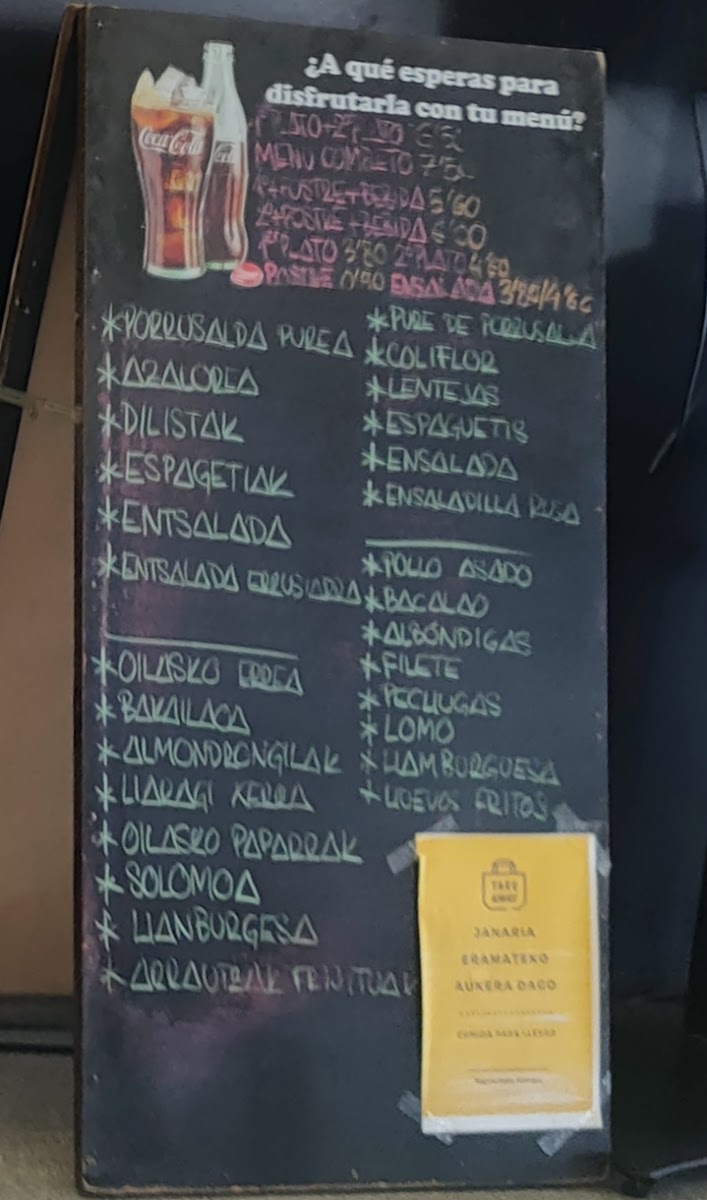 ¿A qué esperas para
disfrutarla con tu menú?
Coca-Cola
1º PLATO+2º PLATO 6'50
MENU COMPLETO 7'50
1º+POSTRE+BEBIDA 5'60
2º+POSTRE+BEBIDA 6'00
1º PLATO 3'80 2º PLATO 4'80
POSTRE 0'90 ENSALADA 3'80/4'80
*PORRUSALDA PUREA
*AZALOREA
*DILISTAK
*ESPAGETIAK
*ENTSALADA
*ENTSALADA ERRUSIARRA
*OILASKO ERREA
*BAKAILAOA
*ALMONDRONGILAK
*HARAGI XERRA
*OILASKO PAPARRAK
*SOLOMOA
*HANBURGESA
*ARRAUTZAK FRIJITUAK
*PURE DE PORRUSALDA
*COLIFLOR
*LENTEJAS
*ESPAGUETIS
*ENSALADA
*ENSALADILLA RUSA
*POLLO ASADO
*BACALAO
*ALBÓNDIGAS
*FILETE
*PECHUGAS
*LOMO
*HAMBURGUESA
*HUEVOS FRITOS
TAKE
AWAY
JANARIA
ERAMATEKO
AUKERA DAGO
COMIDA PARA LLEVAR